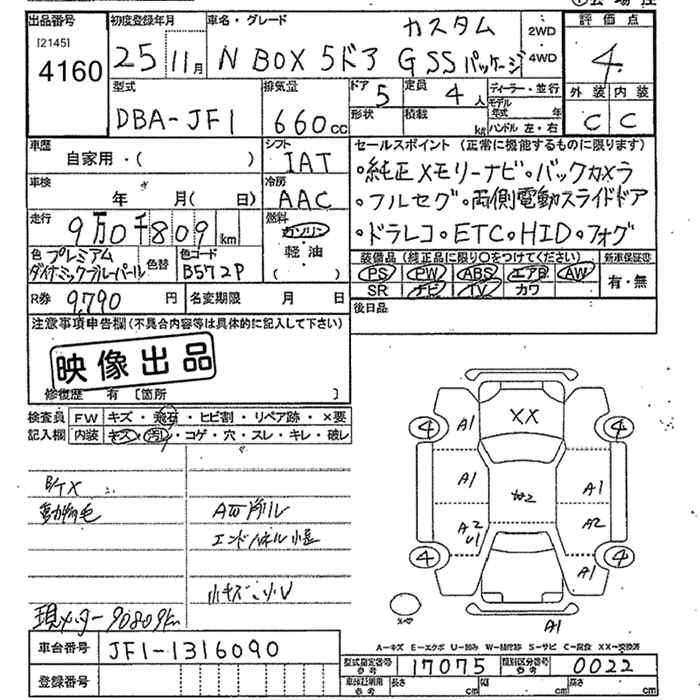 出品番号 初度登録年月 車名・グレード カスタム 2WD 評価点
[2145] 4160 25 11月 N BOX 5ドア G SS パッケージ 4WD 4
外装 内装
型式 排気量 ドア 5 定員 4人 ディーラー・並行
モデル年式 年
DBA-JF1 660cc 形状 積載 kg ハンドル 左・右 C C
車歴 シフト セールスポイント (正常に機能するものに限ります)
自家用・( ) IAT ・純正メモリーナビ・バックカメラ
車検 冷房
年 月( 日) AAC ・フルセグ・両側電動スライドドア
走行 燃料
9万0千809km ガソリン ・ドラレコ・ETC・HID・フォグ
軽・油
色 プレミアム 色替 色コード 装備品 (純正品に限り○をつけてください) 新車保証書
ダイナミックブルーパール B572P ( ) PS PW ABS エアB AW 有・無
R券 9,790円 名変期限 月 日 SR ナビ TV カワ
注意事項申告欄 (不具合内容等は具体的に記入して下さい) 後日品
映像出品
修復歴 有 [箇所 ]
検査員 FW キズ・飛石・ヒビ割・リペア跡・×要
記入欄 内装 キズ・汚れ・コゲ・穴・スレ・キレ・破レ
XX
4 A1 4
A1 A1
A2 A2
4 4
A1
A1
動物毛
現メーター 90809km
A-キズ E-エクボ U-凹み W-補修跡 S-サビ C-腐食 XX-交換済
車台番号 JF1-1316090
型式指定番号 参考 17075 類別区分番号 参考 0022
登録番号 車体証明用 参考 長さ cm 幅 cm 高さ cm